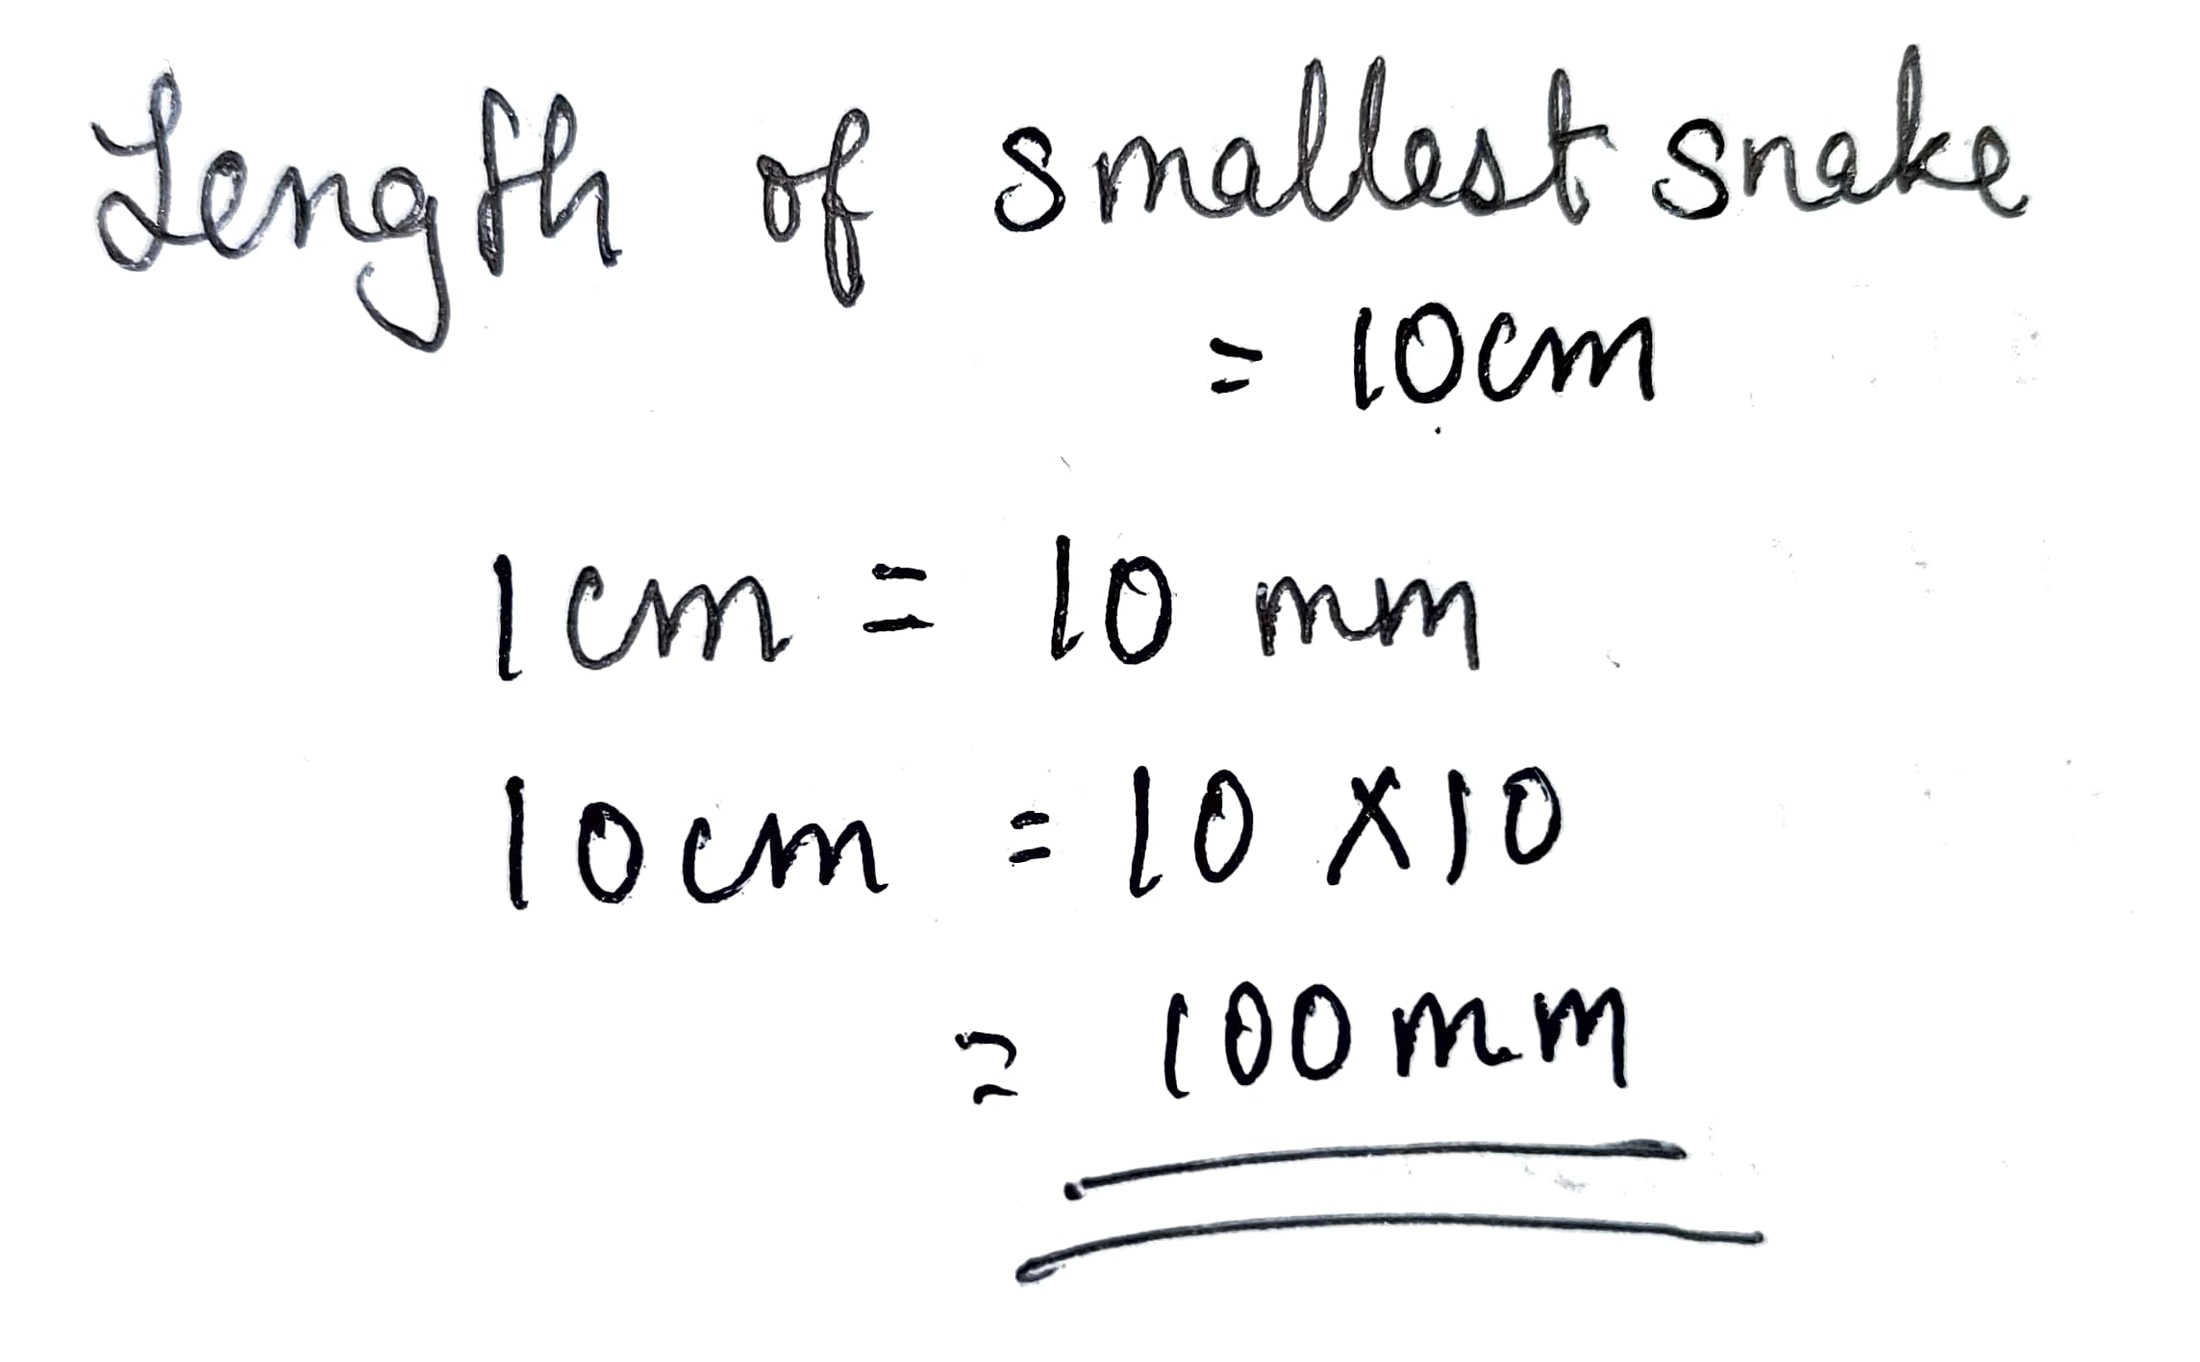 Length of smallest snake
= 10cm
1cm = 10 mm
10cm = 10 X10
= 100mm